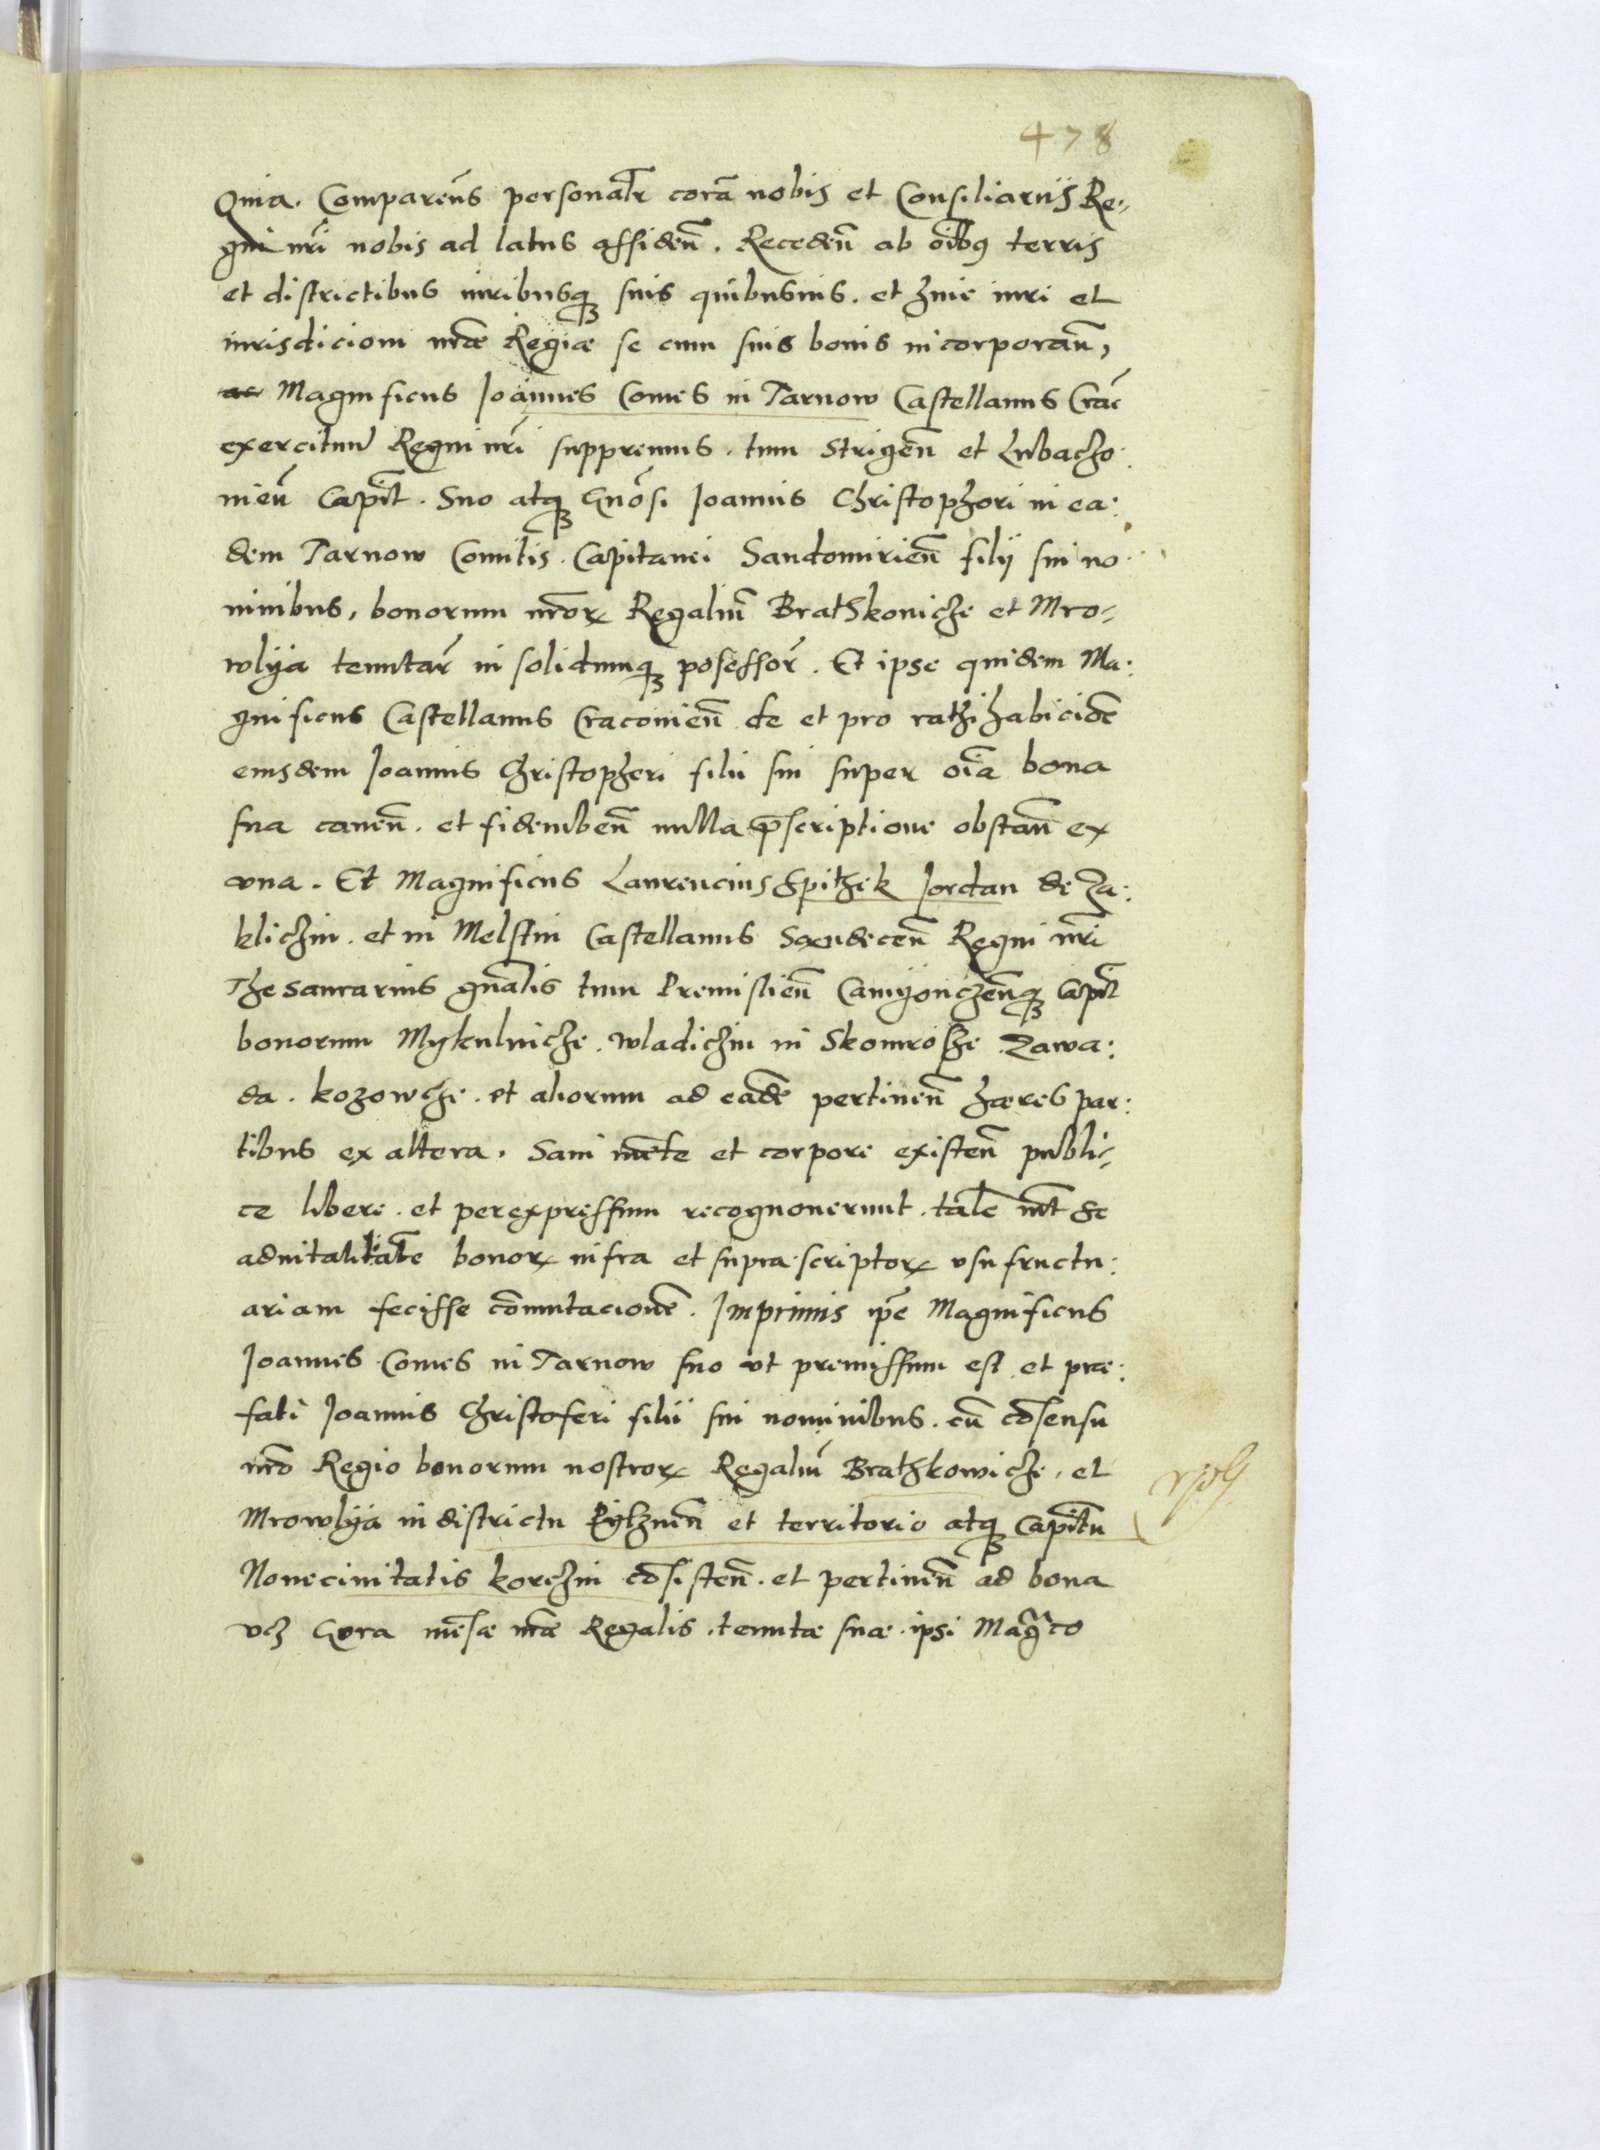 478
Quia. Comparen̄s personalr̄ corā nobis et Consiliariis Re-
gni nr̄i nobis ad latus assiden̄. Receden̄ ab oībus terris
et districtibus iuribusq₃ suis quibusuis. et huic iuri et
iurisdicioni nr̄ae Regiae se cum suis bonis incorporan̄,
Magnificus Ioannes Comes in Tarnow Castellanus Crac̄
exercituū Regni nr̄i suppremus. tum Strigen̄ et Lubacho
nien̄ Capit̄. Suo atq₃ Gn̄osi Ioannis Christophori in ea:
dem Tarnow Comitis. Capitanei Sandomirien̄ filij sui no
minibus, bonorum nr̄oꝝ Regaliū Brathkoniche et Mro-
wlya tenutar̄ in solidumq₃ posessor̄. Et ipse quidem Ma:
gnificus Castellanus Cracouien̄ de et pro rathihabicioē
eiusdem Ioannis Christopheri filii sui super oīa bona
sua cauen̄. et fideiuben̄ nulla p̄scriptione obstan̄ ex
vna. Et Magnificus Laurencius Spithek Jordan de Za:
klichin. et in Melstin Castellanus Sandecen̄ Regni nr̄i
Thesaurarius gn̄alis tum Premislien̄ Camyonczen̄q₃ Capit̄
bonorum Mykulniche. wladichin in Skomrosze. Zawa:
da. kozowche. et aliorum ad eadē pertinen̄ haeres par:
tibus ex altera. Sani mēte et corpore existen̄ publi-
ce libere. et perexpressum recognouerunt. talē int̄ se
aduitalitalē bonoꝝ infra et supra scriptoꝝ vsufructu:
ariam fecisse com̄utacionē. Imprimis ip̄e Magnificus
Ioannes Comes in Tarnow suo vt premissum est et prae:
fati Ioannis Christoferi filii sui nominibus. cū cōsensu
nr̄o Regio bonorum nostroꝝ Regaliū Brathkowiche, et
Mrowlya in districtu Pylznen̄ et territorio atq₃ Capit̄u
Nouecivitatis korchin cōsisten̄. et pertinen̄ ad bona
vcz Gora mēsae nr̄ae Regalis. tenutae suae. ipsi Mag̃co